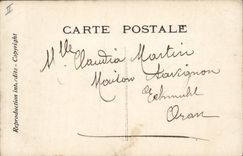 II
CARTE POSTALE
Mlle Claudia Martin
Maison Savignon
Eckmuhl
Oran
Reproduction inte.dite - Copyright